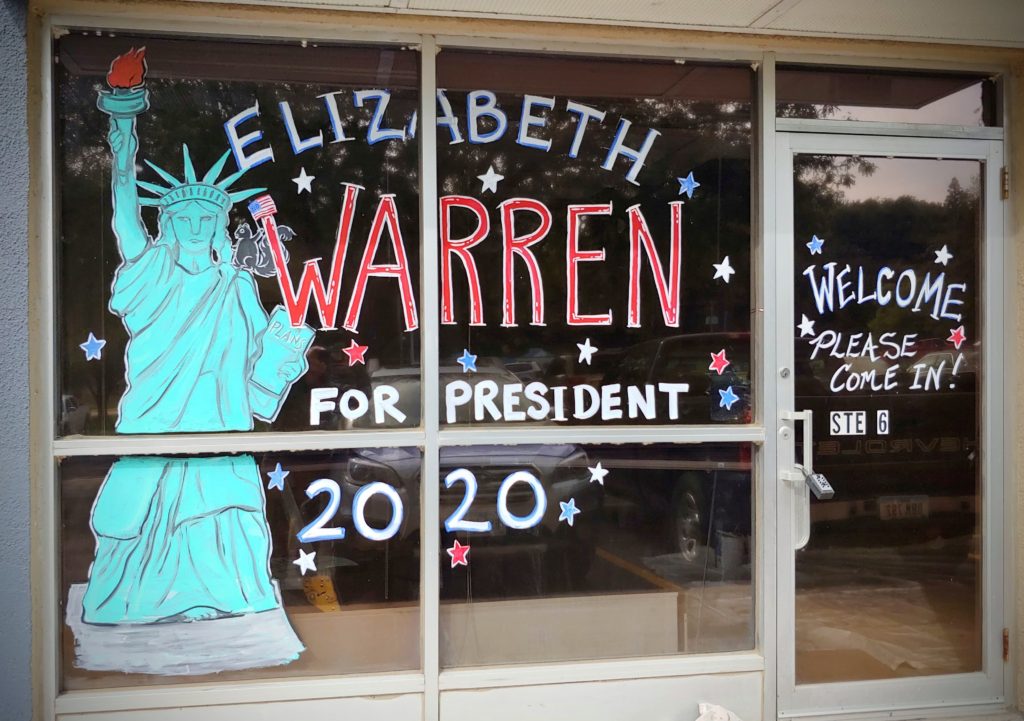 ELIZABETH
WARREN
PLANS
FOR PRESIDENT
2020
WELCOME
PLEASE
COME IN!
STE 6